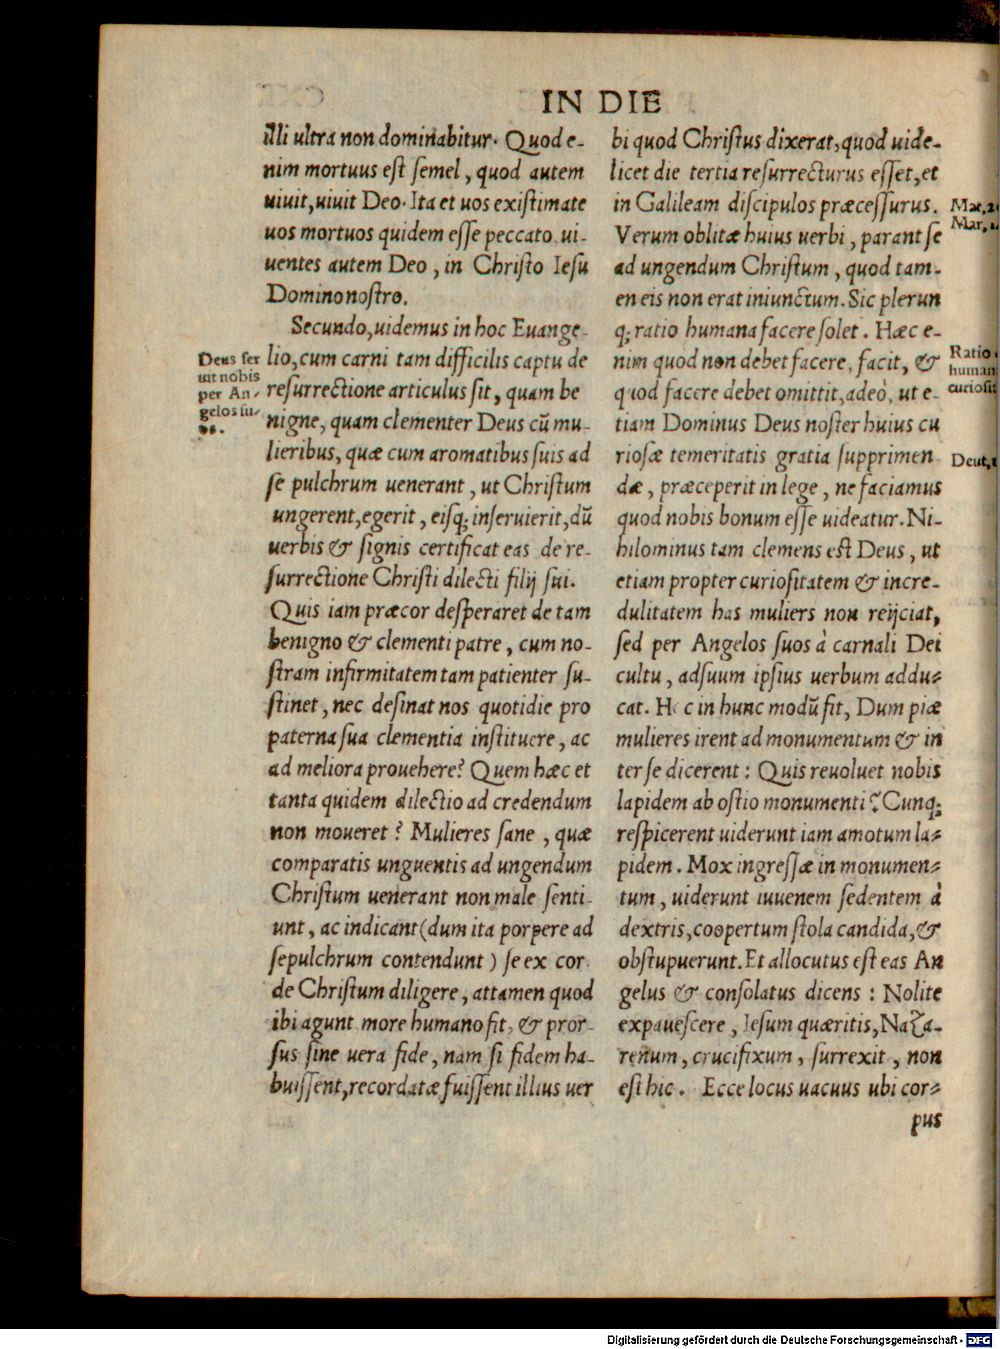 IN DIE
illi ultra non dominabitur. Quod e-
nim mortuus est semel, quod autem
uiuit, uiuit Deo. Ita et uos existimate
uos mortuos quidem esse peccato ui-
uentes autem Deo, in Christo Iesu
Domino nostro.
Secundo, uidemus in hoc Euange-
lio, cum carni tam difficilis captu de
resurrectione articulus sit, quam be
nigne, quam clementer Deus cũ mu-
lieribus, quæ cum aromatibus suis ad
se pulchrum uenerant, ut Christum
ungerent, egerit, eisq; inseruierit, dũ
uerbis & signis certificat eas de re-
surrectione Christi dilecti filij sui.
Quis iam præcor desperaret de tam
benigno & clementi patre, cum no-
stram infirmitatem tam patienter su-
stinet, nec desinat nos quotidie pro
paterna sua clementia instituere, ac
ad meliora prouehere? Quem hæc et
tanta quidem dilectio ad credendum
non moueret? Mulieres sane, quæ
comparatis unguentis ad ungendum
Christum uenerant non male senti-
unt, ac indicant (dum ita porpere ad
sepulchrum contendunt) se ex cor
de Christum diligere, attamen quod
ibi agunt more humano fit, & pror-
sus sine uera fide, nam si fidem ha-
buissent, recordatæ fuissent illius uer
Deus ser
uit nobis
per An-
gelos su-
os.
bi quod Christus dixerat, quod uide-
licet die tertia resurrecturus esset, et
in Galileam discipulos præcessurus.
Verum oblitæ huius uerbi, parant se
ad ungendum Christum, quod tam-
en eis non erat iniunctum. Sic plerun
q; ratio humana facere solet. Hæc e-
nim quod non debet facere, facit, &
quod facere debet omittit, adeò, ut e-
tiam Dominus Deus noster huius cu
riosæ temeritatis gratia supprimen
dæ, præceperit in lege, ne faciamus
quod nobis bonum esse uideatur. Ni-
hilominus tam clemens est Deus, ut
etiam propter curiositatem & incre-
dulitatem has muliers non reijciat,
sed per Angelos suos à carnali Dei
cultu, ad suum ipsius uerbum addu-
cat. H c in hunc modũ fit, Dum piæ
mulieres irent ad monumentum & in
ter se dicerent: Quis reuoluet nobis
lapidem ab ostio monumenti? Cunq;
respicerent uiderunt iam amotum la-
pidem. Mox ingressæ in monumen-
tum, uiderunt iuuenem sedentem à
dextris, coopertum stola candida, &
obstupuerunt. Et allocutus est eas An
gelus & consolatus dicens: Nolite
expauescere, Iesum quæritis, Naza-
renum, crucifixum, surrexit, non
est hic. Ecce locus uacuus ubi cor-
pus
Mar,
Ratio
human
curiosit
Deut,
Digitalisierung gefördert durch die Deutsche Forschungsgemeinschaft - DFG